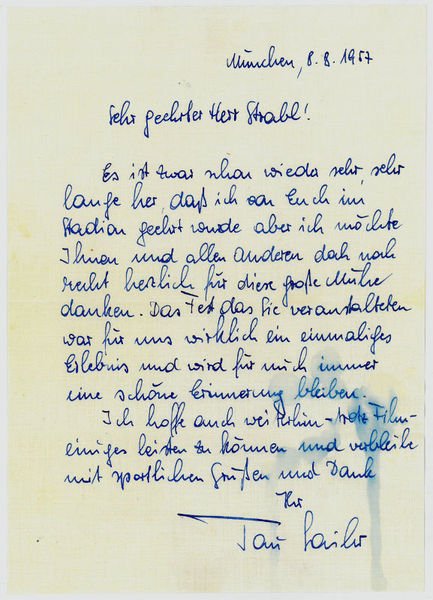 München, 8.8.1957
Sehr geehrter Herr Strabl!
Es ist zwar schon wieder sehr, sehr
lange her, daß ich von Euch im
Stadion geehrt wurde aber ich möchte
Ihnen und allen anderen doch noch
recht herzlich für diese große Mühe
danken. Das Fest das Sie veranstalteten
war für uns wirklich ein einmaliges
Erlebnis und wird für mich immer
eine schöne Erinnerung bleiben.
Ich hoffe auch weiterhin - trotz Film -
einiges leisten zu können und verbleibe
mit sportlichen Grüßen und Dank
Ihr
Toni Sailer